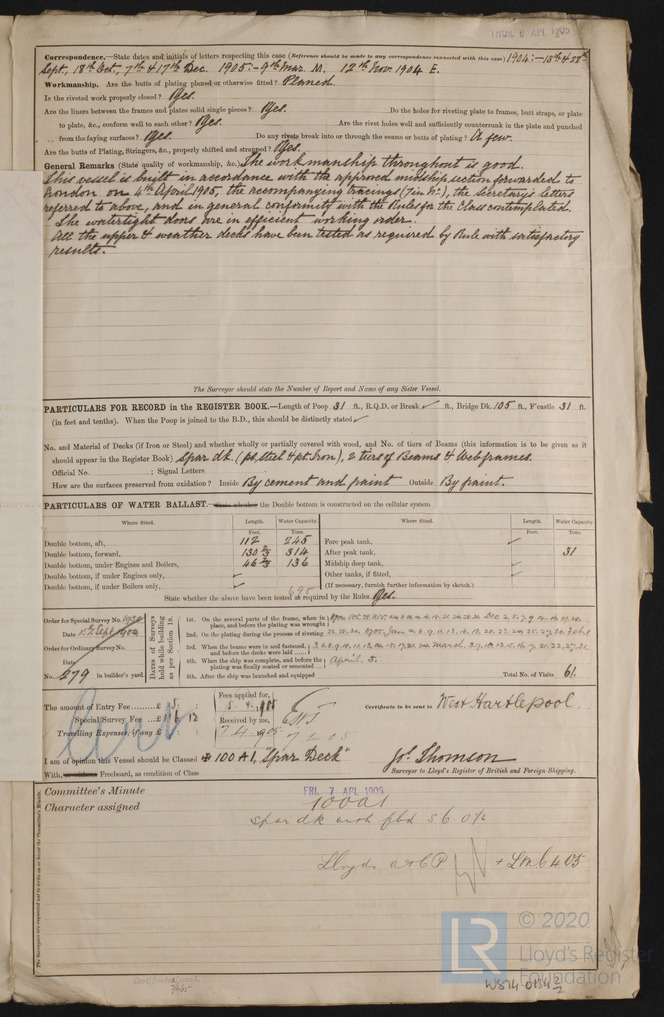 THUR. 6 APL 1905
Correspondence.—State dates and initials of letters respecting this case (Reference should be made to any correspondence connected with this case) 1904:—13th & 28th
Sept, 18th Oct, 7th & 17th Dec. 1905:—9th Mar. M. 12th Nov. 1904 E.
Workmanship. Are the butts of plating planed or otherwise fitted? Planed
Is the riveted work properly closed? Yes.
Are the liners between the frames and plates solid single pieces? Yes. Do the holes for riveting plate to frames, butt straps, or plate
to plate, &c., conform well to each other? Yes. Are the rivet holes well and sufficiently countersunk in the plate and punched
from the faying surfaces? Yes. Do any rivets break into or through the seams or butts of plating? A few.
Are the butts of Plating, Stringers, &c., properly shifted and strapped? Yes.
General Remarks (State quality of workmanship, &c.) The workmanship throughout is good.
This vessel is built in accordance with the approved midship section forwarded to
London on 4th April 1905, the accompanying tracings (7 in No), the Secretarys letters
referred to above, and in general conformity with the Rules for the Class contemplated.
The watertight doors are in efficient working order.
All the upper & weather decks have been tested as required by Rule with satisfactory
results.
The Surveyor should state the Number of Report and Name of any Sister Vessel.
PARTICULARS FOR RECORD in the REGISTER BOOK.—Length of Poop 31 ft., R.Q.D. or Break ✓ ft., Bridge Dk. 105 ft., F'castle 31 ft.
(in feet and tenths). When the Poop is joined to the B.D., this should be distinctly stated ✓
No. and Material of Decks (if Iron or Steel) and whether wholly or partially covered with wood, and No. of tiers of Beams (this information is to be given as it
should appear in the Register Book) Spar dk (pt, steel & pt. Iron), 2 tiers of Beams & Web frames.
Official No. ; Signal Letters
How are the surfaces preserved from oxidation? Inside By cement and paint Outside By paint.
PARTICULARS OF WATER BALLAST.—State whether the Double bottom is constructed on the cellular system
Where fitted. Length. Water Capacity. Where fitted. Length. Water Capacity.
Feet. Tons. Feet. Tons.
Double bottom, aft, 112 245 Fore peak tank, ✓
Double bottom, forward, 130 314 After peak tank, 31
Double bottom, under Engines and Boilers, 46 136 Midship deep tank, ✓
Double bottom, if under Engines only, ✓ Other tanks, if fitted, ✓
Double bottom, if under Boilers only, ✓ (If necessary, furnish further information by sketch.)
695
State whether the above have been tested as required by the Rules Yes.
Order for Special Survey No.
Date Sept 1904
Order for Ordinary Survey No.
Date
No. 279 in builder's yard.
Dates of Surveys held while building as per Section 18.
1st. On the several parts of the frame, when in place, and before the plating was wrought
2nd. On the plating during the process of riveting
3rd. When the beams were in and fastened, and before the decks were laid
4th. When the ship was complete, and before the plating was finally coated or cemented April 5.
5th. After the ship was launched and equipped Total No. of Visits 61.
The amount of Entry Fee £ 5 : :
Special Survey Fee £
Travelling Expenses, if any £ : :
Fees applied for,
5. 4. 1905
Received by me,
7.4.1905
Certificate to be sent to West Hartlepool.
I am of opinion this Vessel should be Classed ✠ 100 A1, "Spar Deck"
With, or without Freeboard, as condition of Class
Jos. Thomson
Surveyor to Lloyd's Register of British and Foreign Shipping.
Committee's Minute FRI. 7 APL 1905
Character assigned 100A1
Spar dk with fbd
Lloyds A & CP
+ LMC 4 05
© 2020
LR
Lloyd's Register
Foundation